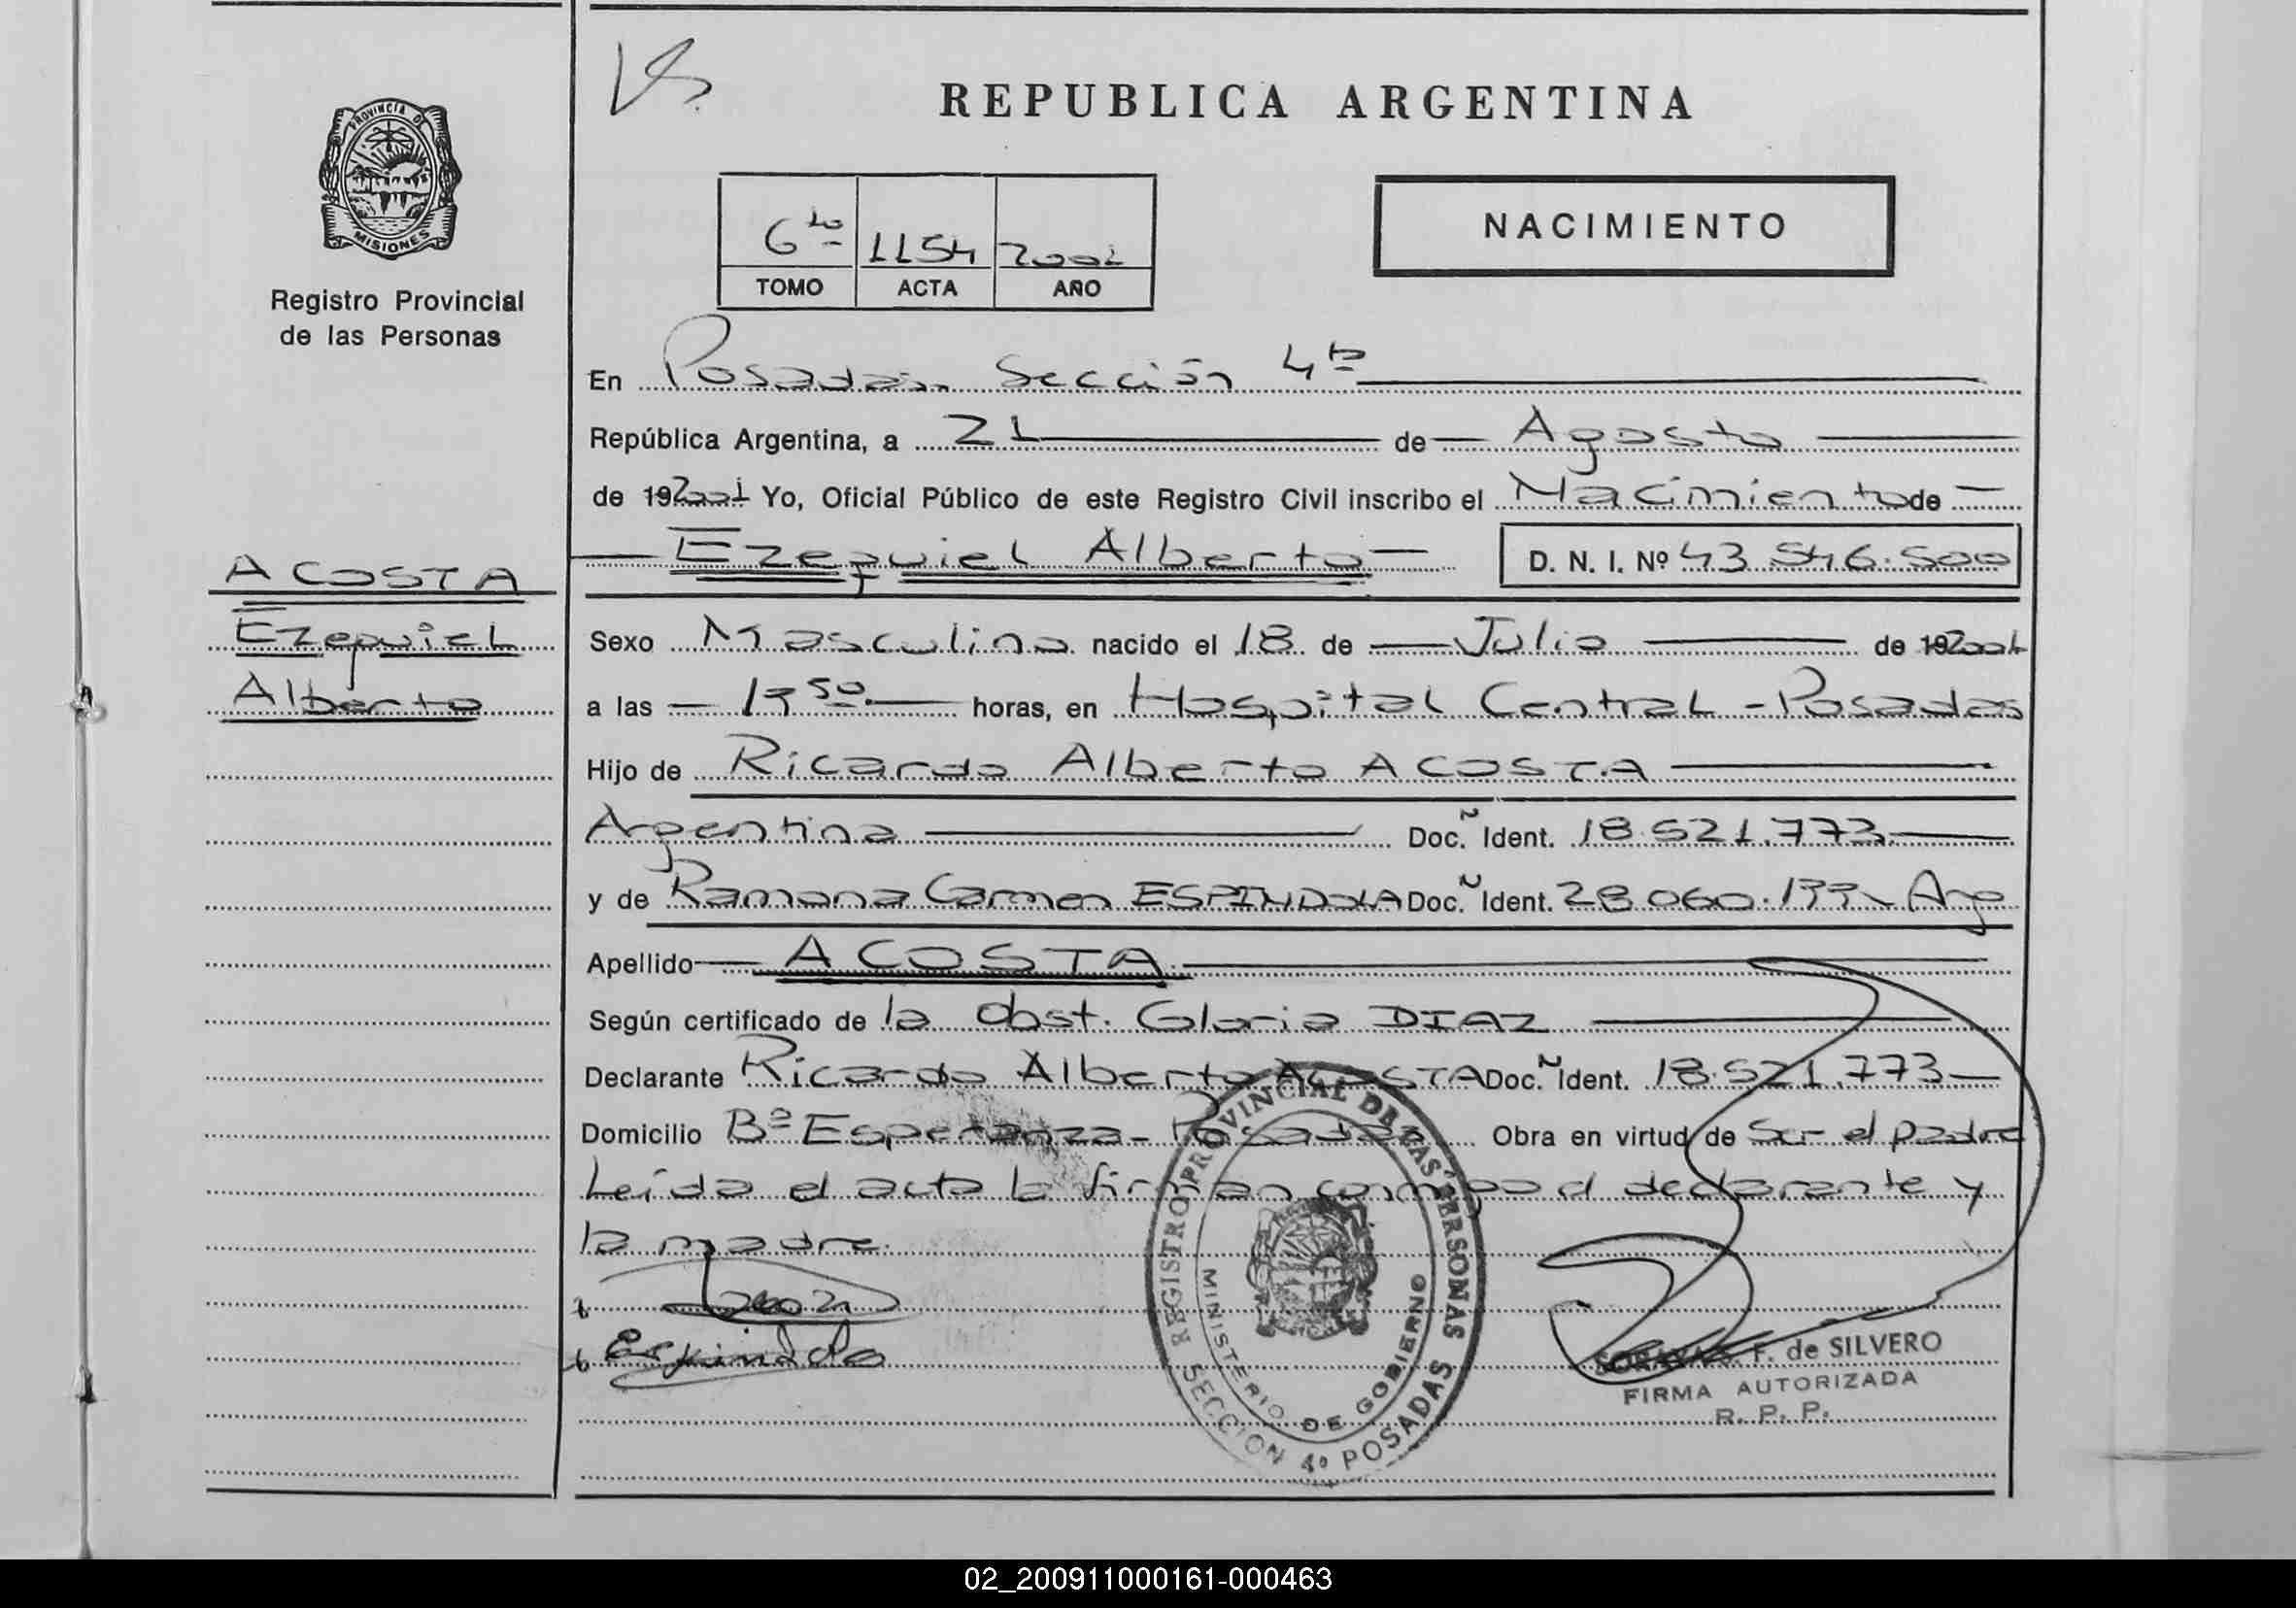 REPUBLICA ARGENTINA
PROVINCIA DE
MISIONES
Registro Provincial
de las Personas
6to 1154 2001
TOMO ACTA AÑO
NACIMIENTO
En Posadas, Sección 4ta
República Argentina, a 21 de Agosto
de 192001 Yo, Oficial Público de este Registro Civil inscribo el Nacimiento de
Ezequiel Alberto D. N. I. Nº 43.546.500
ACOSTA
Ezequiel
Alberto
Sexo Masculino nacido el 18 de Julio de 192001
a las horas, en Hospital Central - Posadas
Hijo de Ricardo Alberto ACOSTA
Argentina Doc. Ident. 18.521.773
y de Ramona Carmen ESPINDOLA Doc. Ident. Arg
Apellido ACOSTA
Según certificado de la Obst. Gloria DIAZ
Declarante Ricardo Alberto ACOSTA Doc. Ident. 18.521.773
Domicilio Bº Esperanza - Posadas Obra en virtud de Ser el padre
Leída el acta la firman conmigo el declarante y
la madre.
Espindola
REGISTRO PROVINCIAL DE LAS PERSONAS
MINISTERIO DE GOBIERNO
SECCION 4º POSADAS
F. de SILVERO
FIRMA AUTORIZADA
R. P. P.
02_200911000161-000463